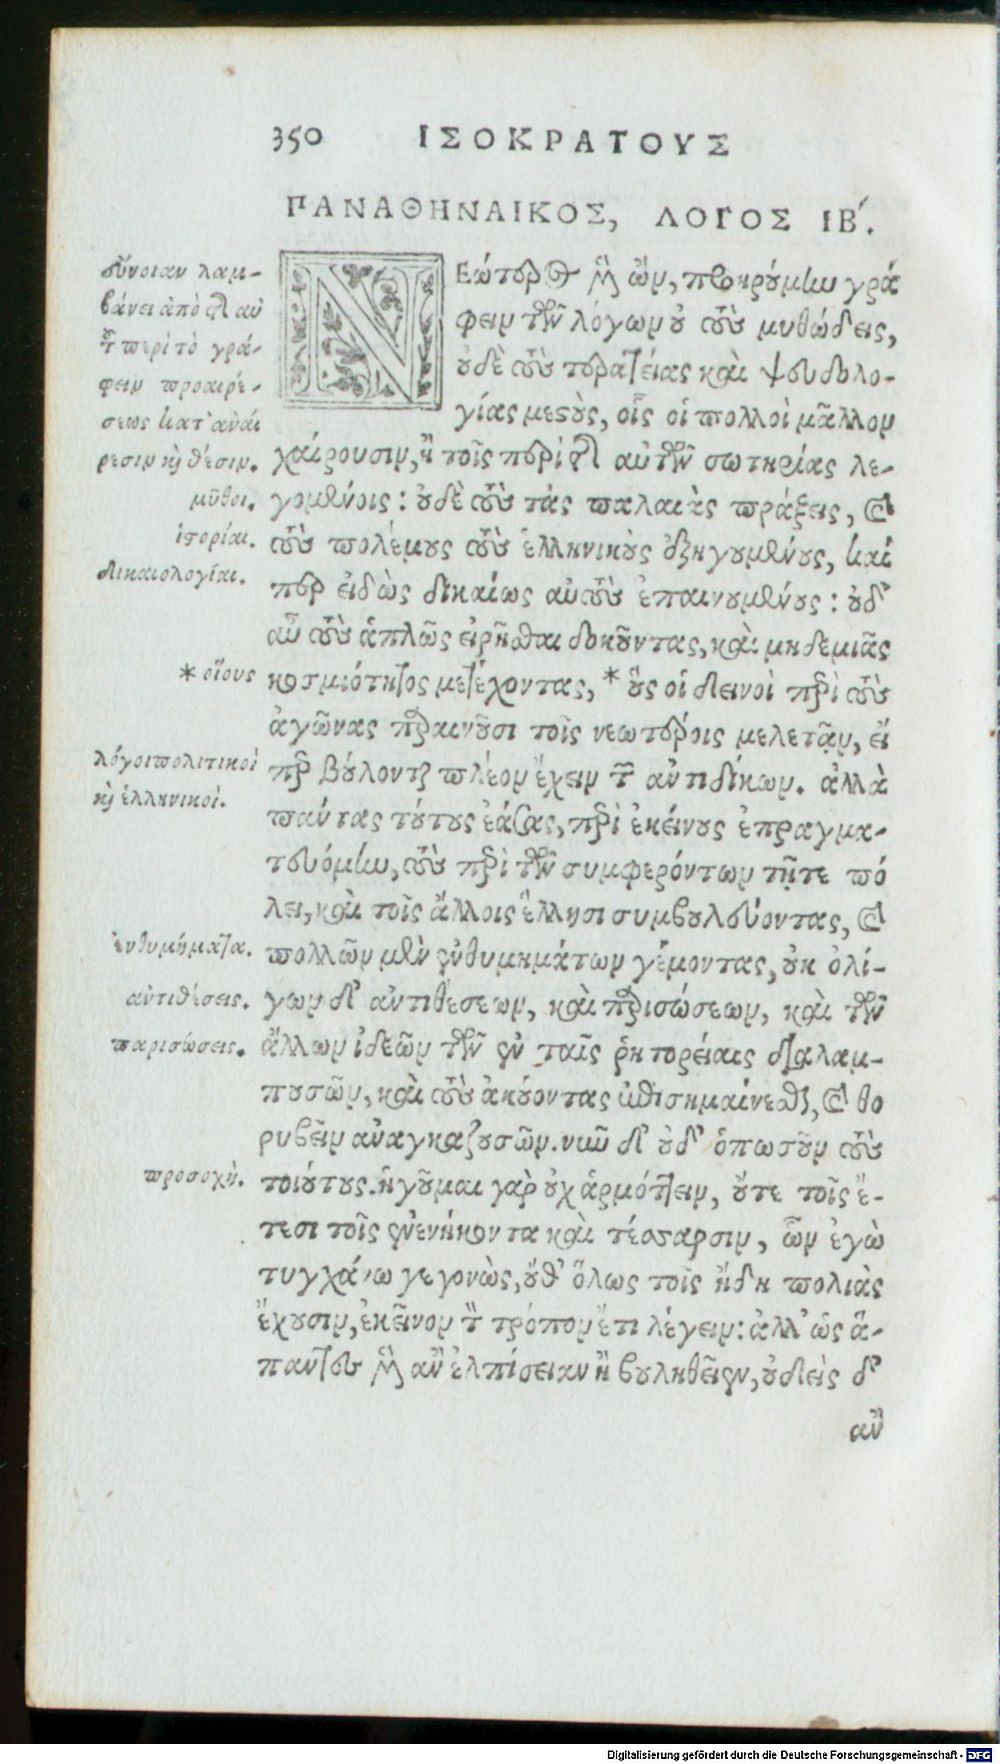 350 ΙΣΟΚΡΑΤΟΥΣ
ΠΑΝΑΘΗΝΑΙΚΟΣ, ΛΟΓΟΣ ΙΒ΄.
εὔνοιαν λαμ-
βάνει ἀπὸ τῆς αὑ
τοῦ περὶ τὸ γρά-
φειν προαιρέ-
σεως κατ' αναί
ρεσιν καὶ θέσιν.
μῦθοι.
ἱστορίαι.
δικαιολογίαι.
* οἵους
λόγοι πολιτικοὶ
καὶ ἑλληνικοί.
ἐνθυμήματα.
ἀντιθέσεις.
παρισώσεις.
προσοχή.
ΝΕώτερος μὲν ὢν, προῃρούμην γρά
φειν τῶν λόγων οὐ τοὺς μυθώδεις,
οὐδὲ τοὺς τερατείας καὶ ψευδολο-
γίας μεστοὺς, οἷς οἱ πολλοὶ μᾶλλον
χαίρουσιν, ἢ τοῖς περὶ τῆς αὑτῶν σωτηρίας λε-
γομένοις: οὐδὲ τοὺς τὰς παλαιὰς πράξεις, καὶ
τοὺς πολέμους τοὺς ἑλληνικοὺς ἐξηγουμένους, καί
περ εἰδὼς δικαίως αὐτοὺς ἐπαινουμένους: οὐδ'
αὖ τοὺς ἁπλῶς εἰρῆσθαι δοκοῦντας, καὶ μηδεμιᾶς
κοσμιότητος μετέχοντας, * οὓς οἱ δεινοὶ περὶ τοὺς
ἀγῶνας παραινοῦσι τοῖς νεωτέροις μελετᾷν, εἴ
περ βούλονται πλέον ἔχειν τῶν ἀντιδίκων. ἀλλὰ
πάντας τούτους ἐάσας, περὶ ἐκείνους ἐπραγμα-
τευόμην, τοὺς περὶ τῶν συμφερόντων τῇτε πό
λει, καὶ τοῖς ἄλλοις ἕλλησι συμβουλεύοντας, καὶ
πολλῶν μὲν ἐνθυμημάτων γέμοντας, οὐκ ὀλί-
γων δ' ἀντιθέσεων, καὶ παρισώσεων, καὶ τῶν
ἄλλων ἰδεῶν τῶν ἐν ταῖς ῥητορείαις διαλαμ-
πουσῶν, καὶ τοὺς ἀκούοντας ἐπισημαίνεσθαι, καὶ θο
ρυβεῖν ἀναγκαζουσῶν. νῦν δ' οὐδ' ὁπωσοῦν τοὺς
τοιούτους. ἡγοῦμαι γὰρ οὐχ ἁρμόττειν, οὔτε τοῖς ἔ-
τεσι τοῖς ἐνενήκοντα καὶ τέσσαρσιν, ὧν ἐγὼ
τυγχάνω γεγονὼς, οὔθ' ὅλως τοῖς ἤδη πολιὰς
ἔχουσιν, ἐκεῖνον τὸν τρόπον ἔτι λέγειν: ἀλλ' ὡς ἅ-
παντες μὲν ἂν ἐλπίσειαν ἢ βουληθεῖεν, οὐδεὶς δ'
ἂν
Digitalisierung gefördert durch die Deutsche Forschungsgemeinschaft - DFG